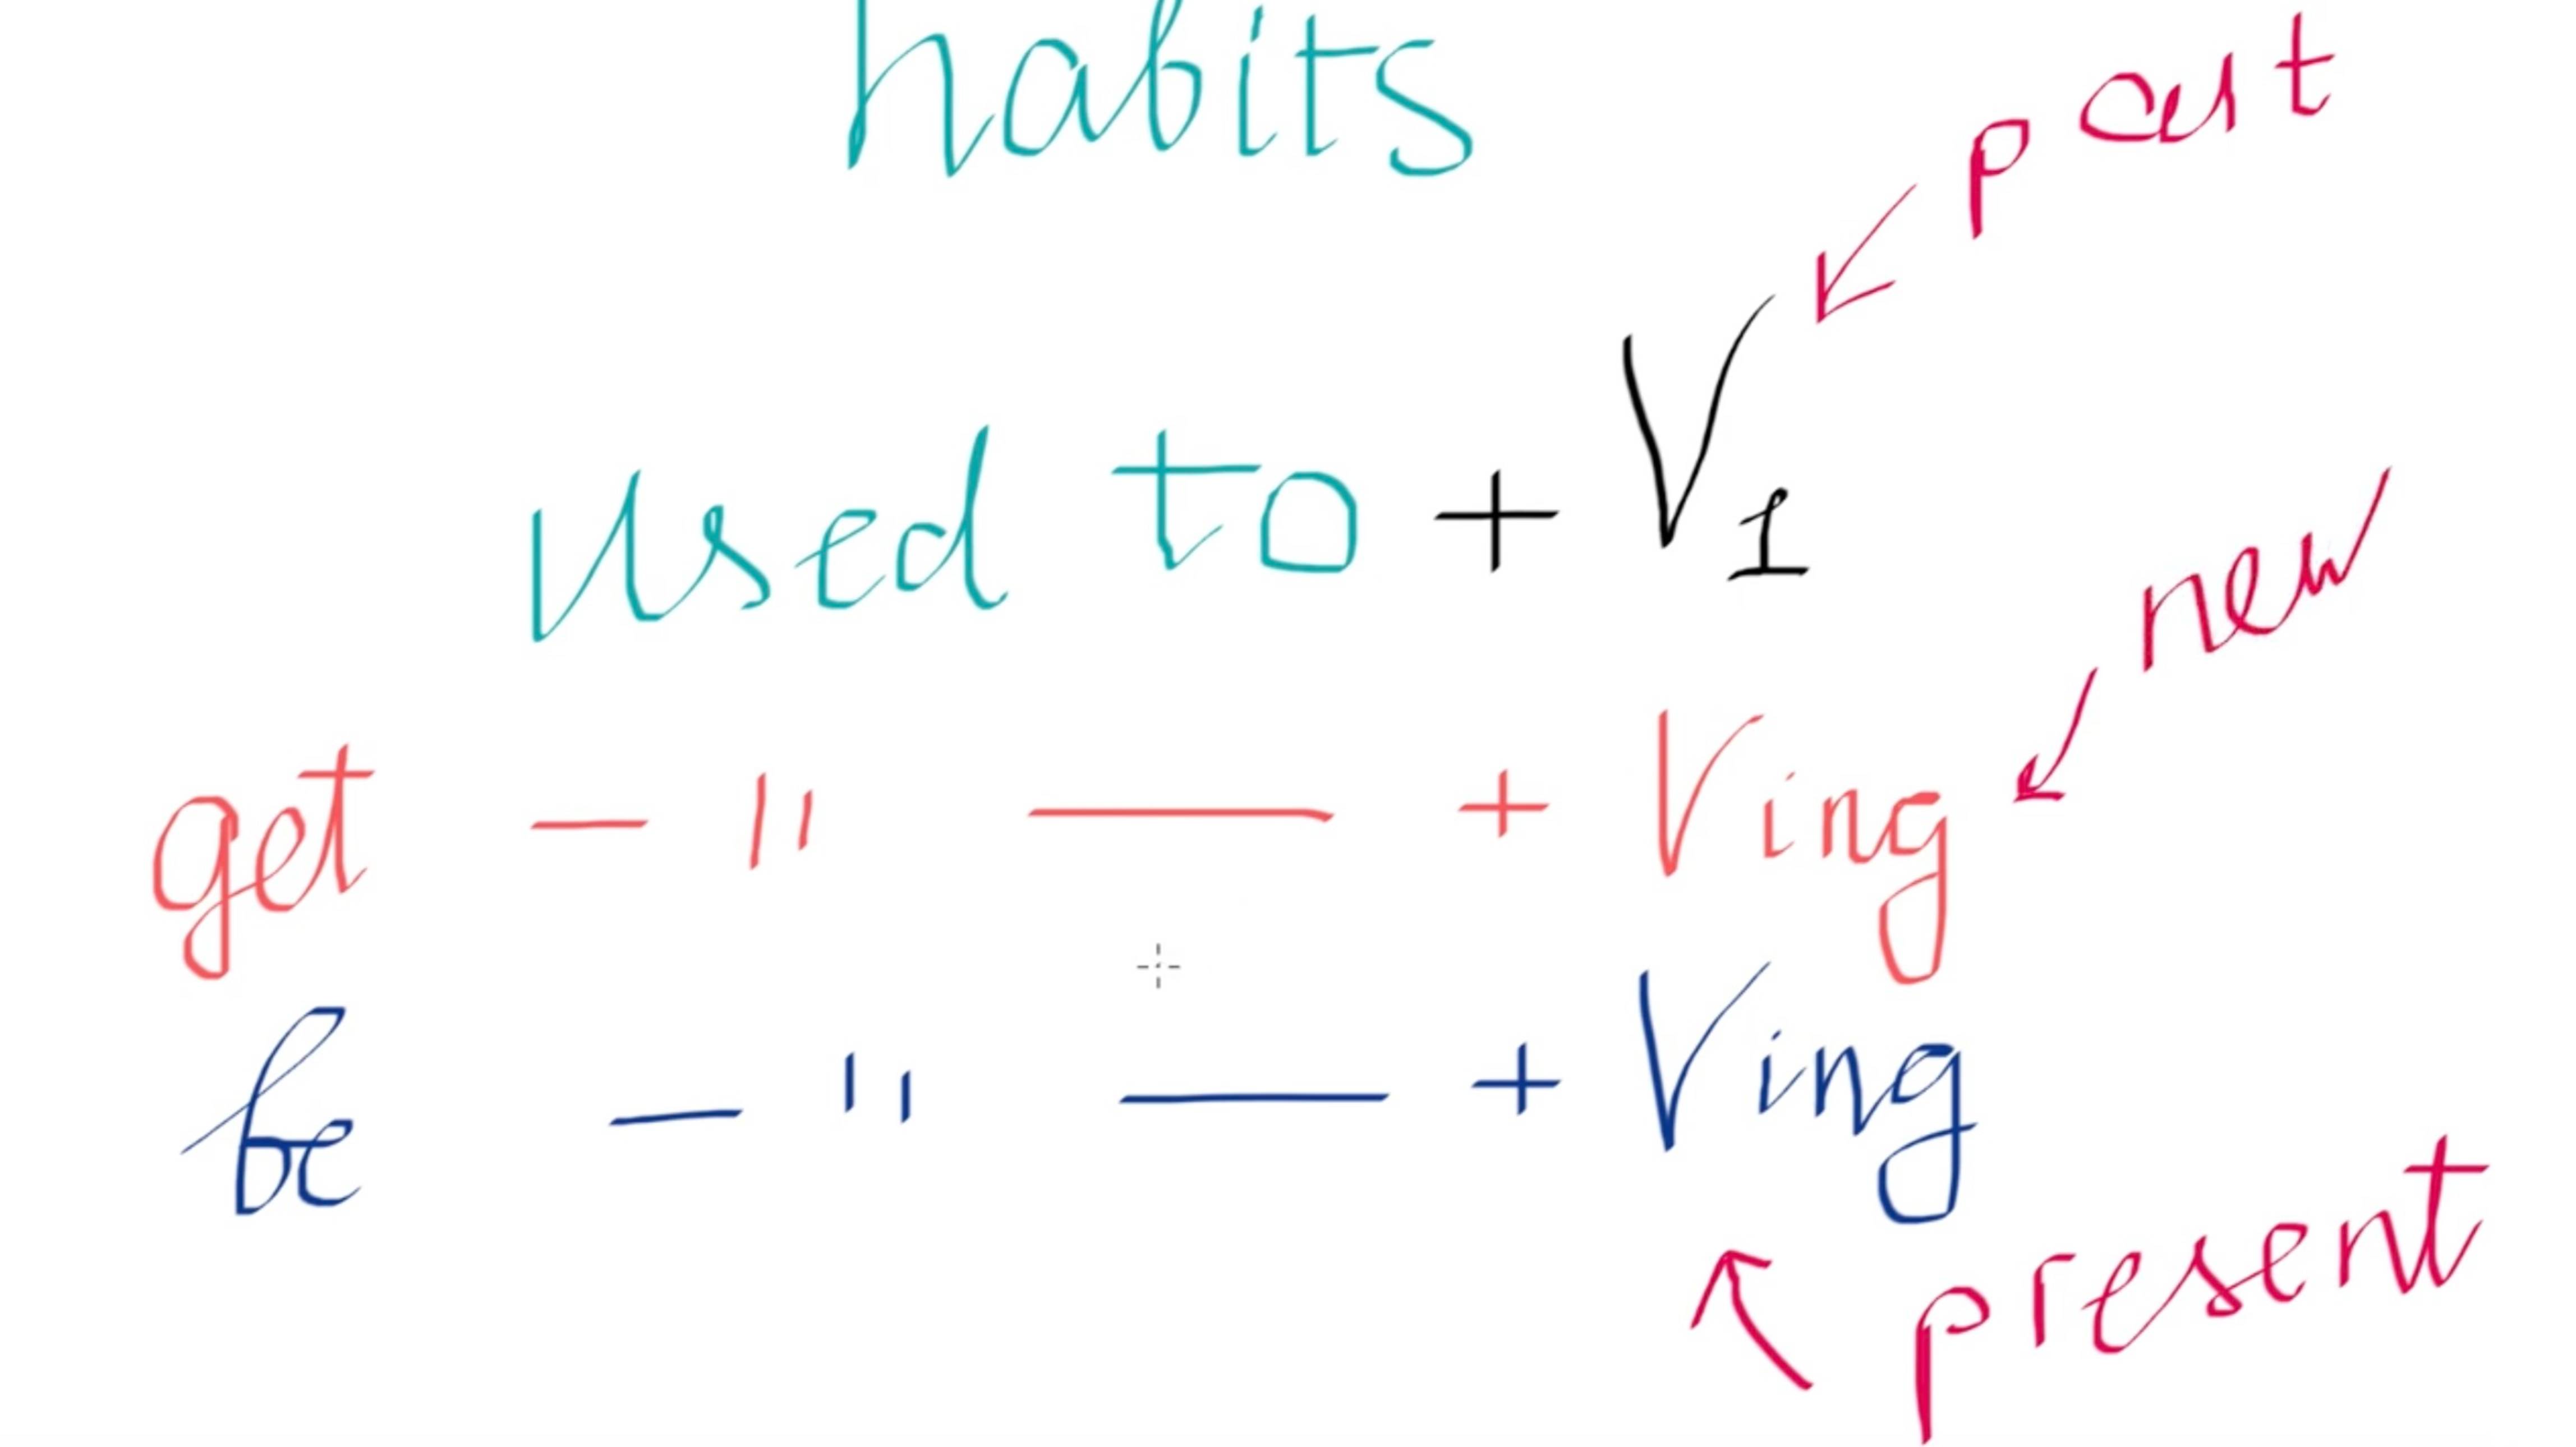 habits
past
used to + V1
new
get — " — + Ving
be — " — + Ving
present